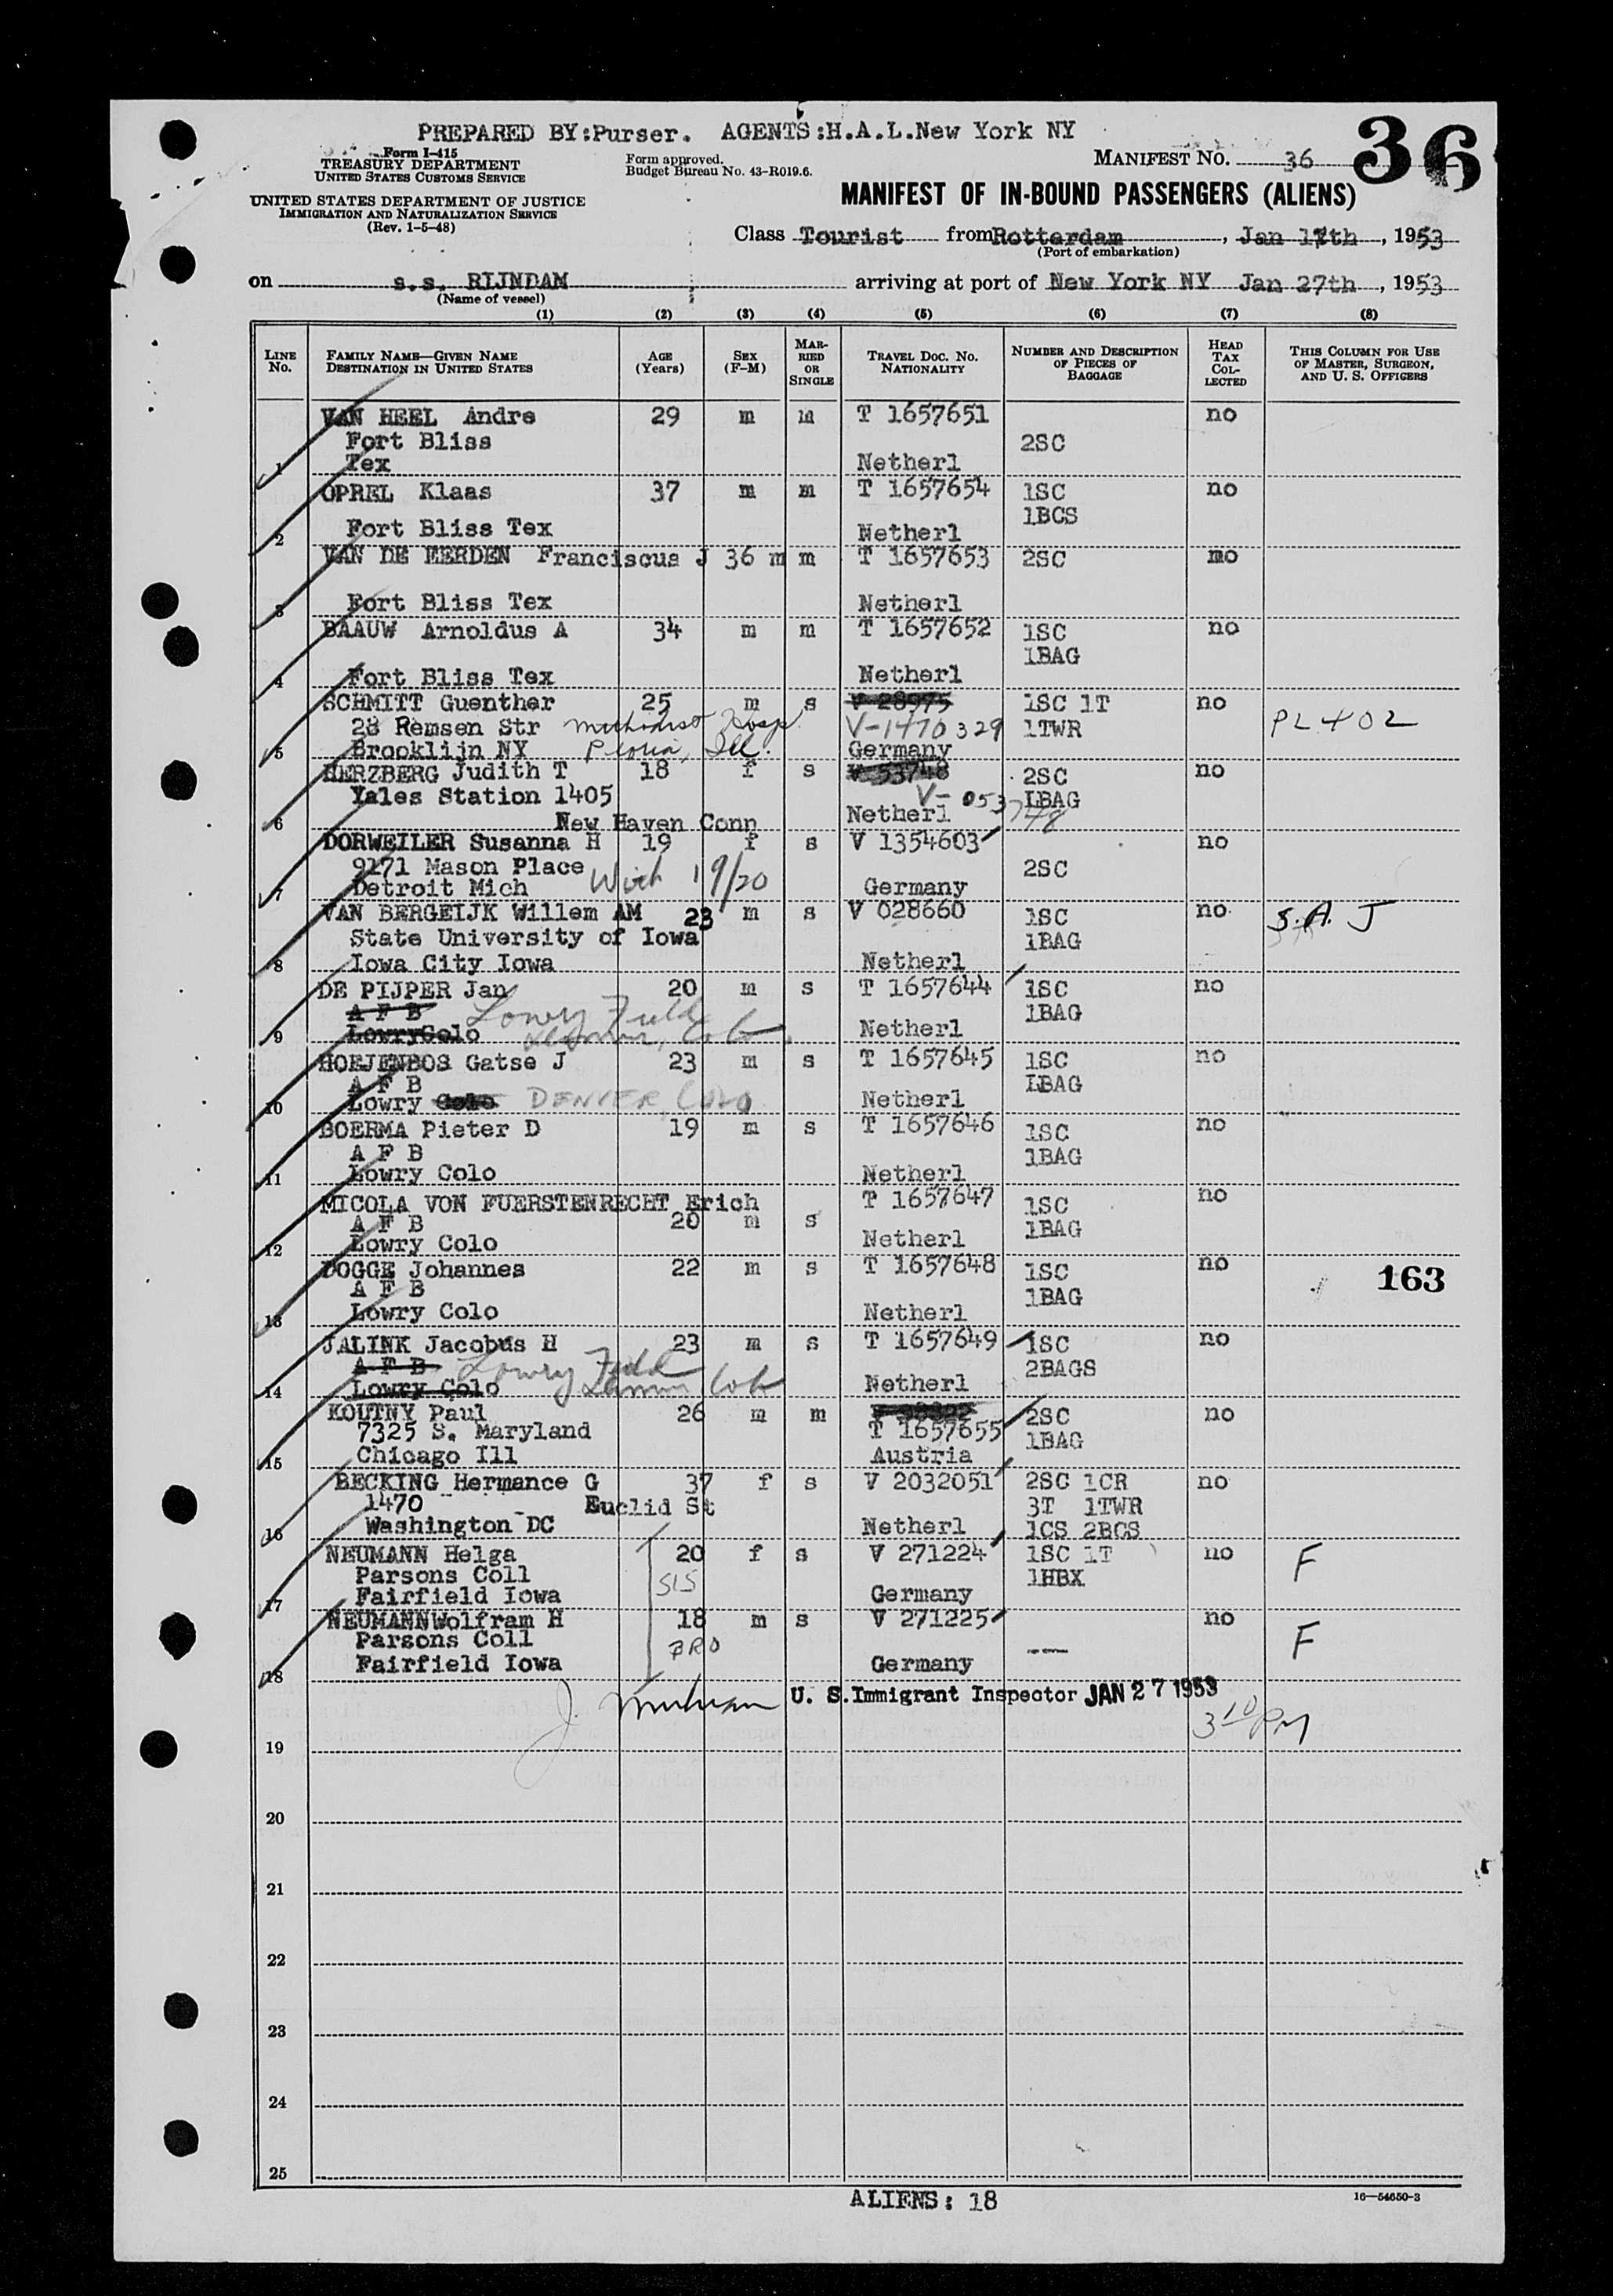 PREPARED BY:Purser. AGENTS:H.A.L.New York NY
Form I-415
TREASURY DEPARTMENT
UNITED STATES CUSTOMS SERVICE
Form approved.
Budget Bureau No. 43-R019.6.
MANIFEST NO. 36
36
UNITED STATES DEPARTMENT OF JUSTICE
IMMIGRATION AND NATURALIZATION SERVICE
(Rev. 1-5-48)
MANIFEST OF IN-BOUND PASSENGERS (ALIENS)
Class Tourist from Rotterdam, Jan 17th, 1953
(Port of embarkation)
on s.s. RIJNDAM arriving at port of New York NY Jan 27th, 1953
(Name of vessel)
(1) (2) (3) (4) (5) (6) (7) (8)
LINE NO.
FAMILY NAME—GIVEN NAME
DESTINATION IN UNITED STATES
AGE (Years)
SEX (F-M)
MARRIED OR SINGLE
TRAVEL DOC. NO.
NATIONALITY
NUMBER AND DESCRIPTION OF PIECES OF BAGGAGE
HEAD TAX COLLECTED
THIS COLUMN FOR USE OF MASTER, SURGEON, AND U. S. OFFICERS
VAN HEEL Andre 29 m m T 1657651 no
Fort Bliss 2SC
1 Tex Netherl
OPREL Klaas 37 m m T 1657654 1SC no
1BCS
2 Fort Bliss Tex Netherl
VAN DE EERDEN Franciscus J 36 m m T 1657653 2SC no
3 Fort Bliss Tex Netherl
BAAUW Arnoldus A 34 m m T 1657652 1SC no
1BAG
4 Fort Bliss Tex Netherl
SCHMITT Guenther 25 m s V 28975 1SC 1T no
28 Remsen Str Methodist Hosp. V-1470329 1TWR PL 402
5 Brooklijn NY Peoria, Ill. Germany
HERZBERG Judith T 18 f s V 53748 2SC no
Yales Station 1405 V-053748 1BAG
6 New Haven Conn Netherl
DORWEILER Susanna H 19 f s V 1354603 no
9171 Mason Place 2SC
7 Detroit Mich With 19/20 Germany
VAN BERGEIJK Willem AM 23 m s V 028660 1SC no S.A. J
State University of Iowa 1BAG
8 Iowa City Iowa Netherl
DE PIJPER Jan 20 m s T 1657644 1SC no
A F B Lowry Field 1BAG
9 LowryColo Denver, Colo. Netherl
HOEJENBOS Gatse J 23 m s T 1657645 1SC no
A F B 1BAG
10 Lowry Colo DENVER, COLO Netherl
BOERMA Pieter D 19 m s T 1657646 1SC no
A F B 1BAG
11 Lowry Colo Netherl
MICOLA VON FUERSTENRECHT Erich T 1657647 1SC no
A F B 20 m s 1BAG
12 Lowry Colo Netherl
DOGGE Johannes 22 m s T 1657648 1SC no 163
A F B 1BAG
13 Lowry Colo Netherl
JALINK Jacobus H 23 m s T 1657649 1SC no
A F B Lowry Field 2BAGS
14 Lowry Colo Denver Colo Netherl
KOUTNY Paul 26 m m 2SC no
7325 S. Maryland T 1657655 1BAG
15 Chicago Ill Austria
BECKING Hermance G 37 f s V 2032051 2SC 1CR no
1470 Euclid St 3T 1TWR
16 Washington DC Netherl 1CS 2BCS
NEUMANN Helga 20 f s V 271224 1SC 1T no F
Parsons Coll SIS 1HBX
17 Fairfield Iowa Germany
NEUMANNWolfram H 18 m s V 271225 no
Parsons Coll BRO --- F
18 Fairfield Iowa Germany
J. U. S. Immigrant Inspector JAN 27 1953
3 10 PM
19
20
21
22
23
24
25
ALIENS: 18
16—54650-3